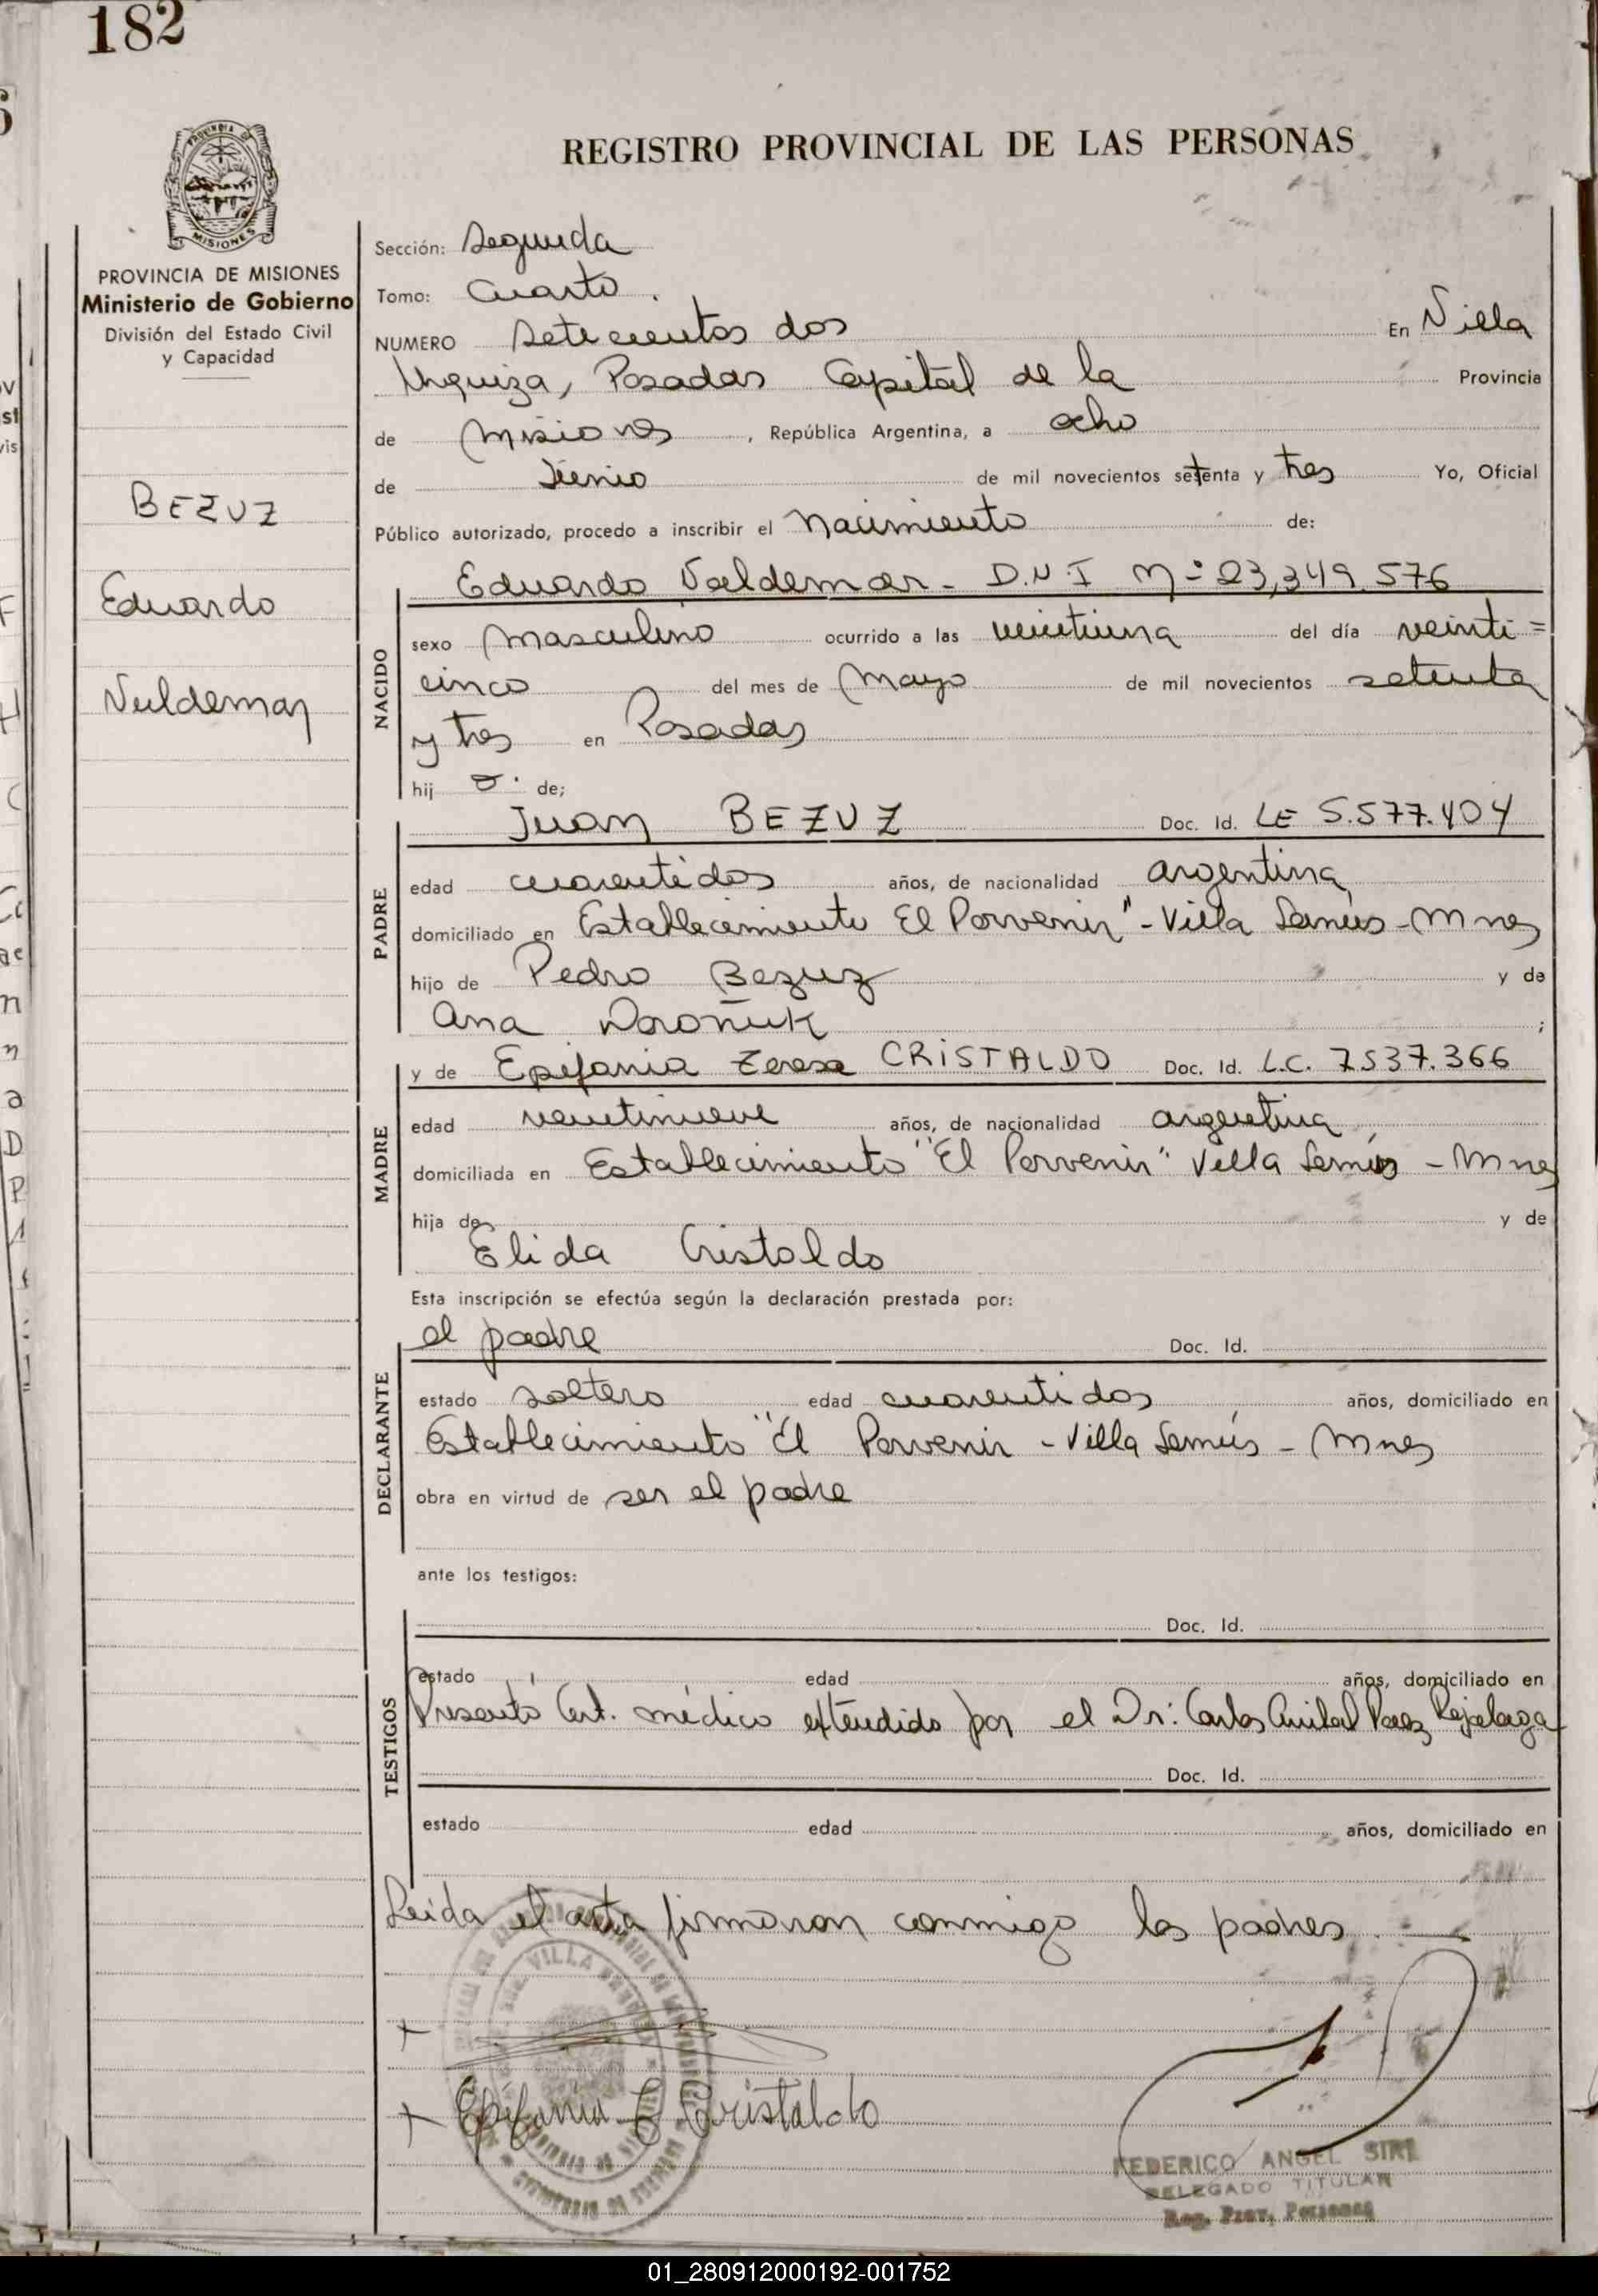 182
REGISTRO PROVINCIAL DE LAS PERSONAS
PROVINCIA DE MISIONES
MISIONES
PROVINCIA DE MISIONES
Ministerio de Gobierno
División del Estado Civil
y Capacidad
BEZUZ
Eduardo
Valdemar
Sección: Segunda
Tomo: Cuarto.
NUMERO Setecientos dos En Villa
Urquiza, Posadas Capital de la Provincia
de Misiones, República Argentina, a ocho
de Junio de mil novecientos setenta y tres Yo, Oficial
Público autorizado, procedo a inscribir el Nacimiento de:
NACIDO
Eduardo Valdemar - D.N.I Nº 23,349.576
sexo Masculino ocurrido a las veintiuna del día veinti=
cinco del mes de Mayo de mil novecientos setenta
y tres en Posadas
hij o. de;
PADRE
Juan BEZUZ Doc. Id. LE 5.577.404
edad cuarentidos años, de nacionalidad argentina
domiciliado en Establecimiento El Porvenir" - Villa Lanús - Mnes
hijo de Pedro Bezuz y de
Ana Doroñuk ;
MADRE
y de Epifania Teresa CRISTALDO Doc. Id. L.C. 7.537.366
edad veintinueve años, de nacionalidad argentina
domiciliada en Establecimiento "El Porvenir" Villa Lanús - Mnes
hija de y de
Elida Cristaldo
Esta inscripción se efectúa según la declaración prestada por:
DECLARANTE
el padre Doc. Id.
estado soltero edad cuarentidos años, domiciliado en
Establecimiento "El Porvenir - Villa Lanús - Mnes
obra en virtud de ser el padre
ante los testigos:
TESTIGOS
Doc. Id.
estado edad años, domiciliado en
Presentó Cert. médico extendido por el Dr: Carlos Anibal Paez Rejalaga
Doc. Id.
estado edad años, domiciliado en
Leida el acta firmaron conmigo los padres. —
+
+ Epifania T Cristaldo
VILLA URQUIZA
FEDERICO ANGEL SIRI
DELEGADO TITULAR
Reg. Prov. Personas
01_280912000192-001752